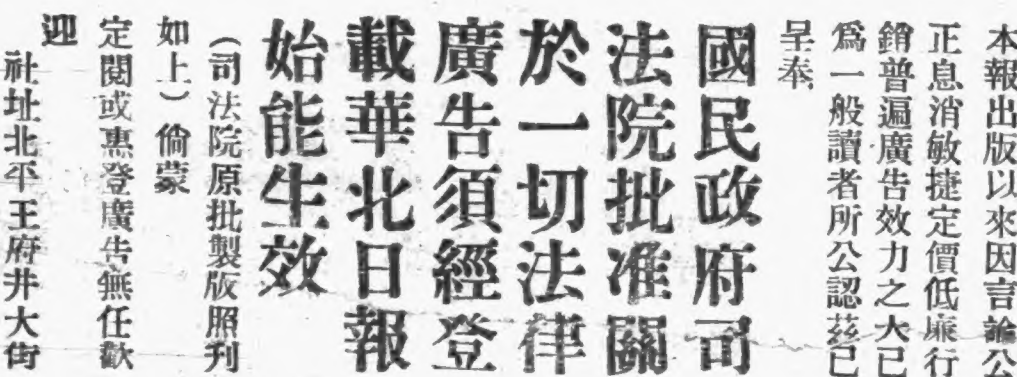 本報出版以來因言論公
正息消敏捷定價低廉行
銷普遍廣告效力之大已
爲一般讀者所公認茲已
呈奉
國民政府司
法院批准關
於一切法律
廣告須經登
載華北日報
始能生效
（司法院原批製版照刊
如上）倘蒙
定閱或惠登廣告無任歡
迎
社址北平王府井大街